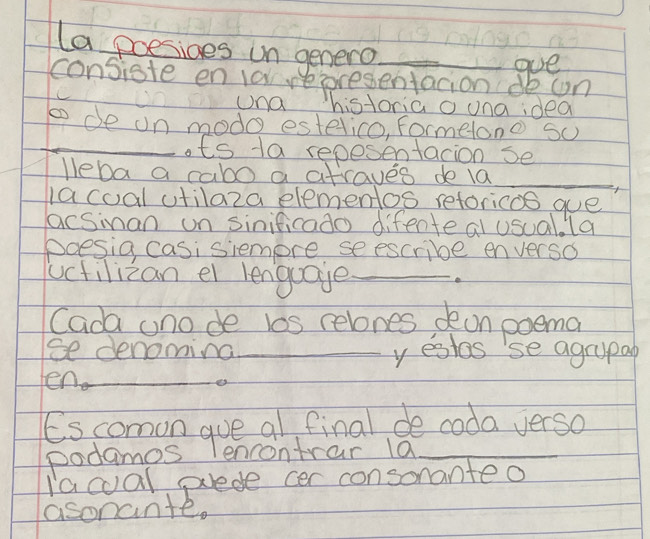 La poesiaes un genero ______ que
consiste en la representacion de un
______ una historia o una idea
de un modo estetico, formelone su
______. Es la repesentacion se
lleba a cabo a através de la ______,
la cual utilaza elementos retoricos que
acsinan un sinificado difente al usual. la
poesia, casi siempre se escribe en verso
uctilizan el lenguaje ______.
Cada uno de los relones de un poema
se denomina ______ y éstos se agrupan
en. ______.
Es comun que al final de cada verso
podamos enrontrar la ______
la cual puede cer consonante o
asonante.